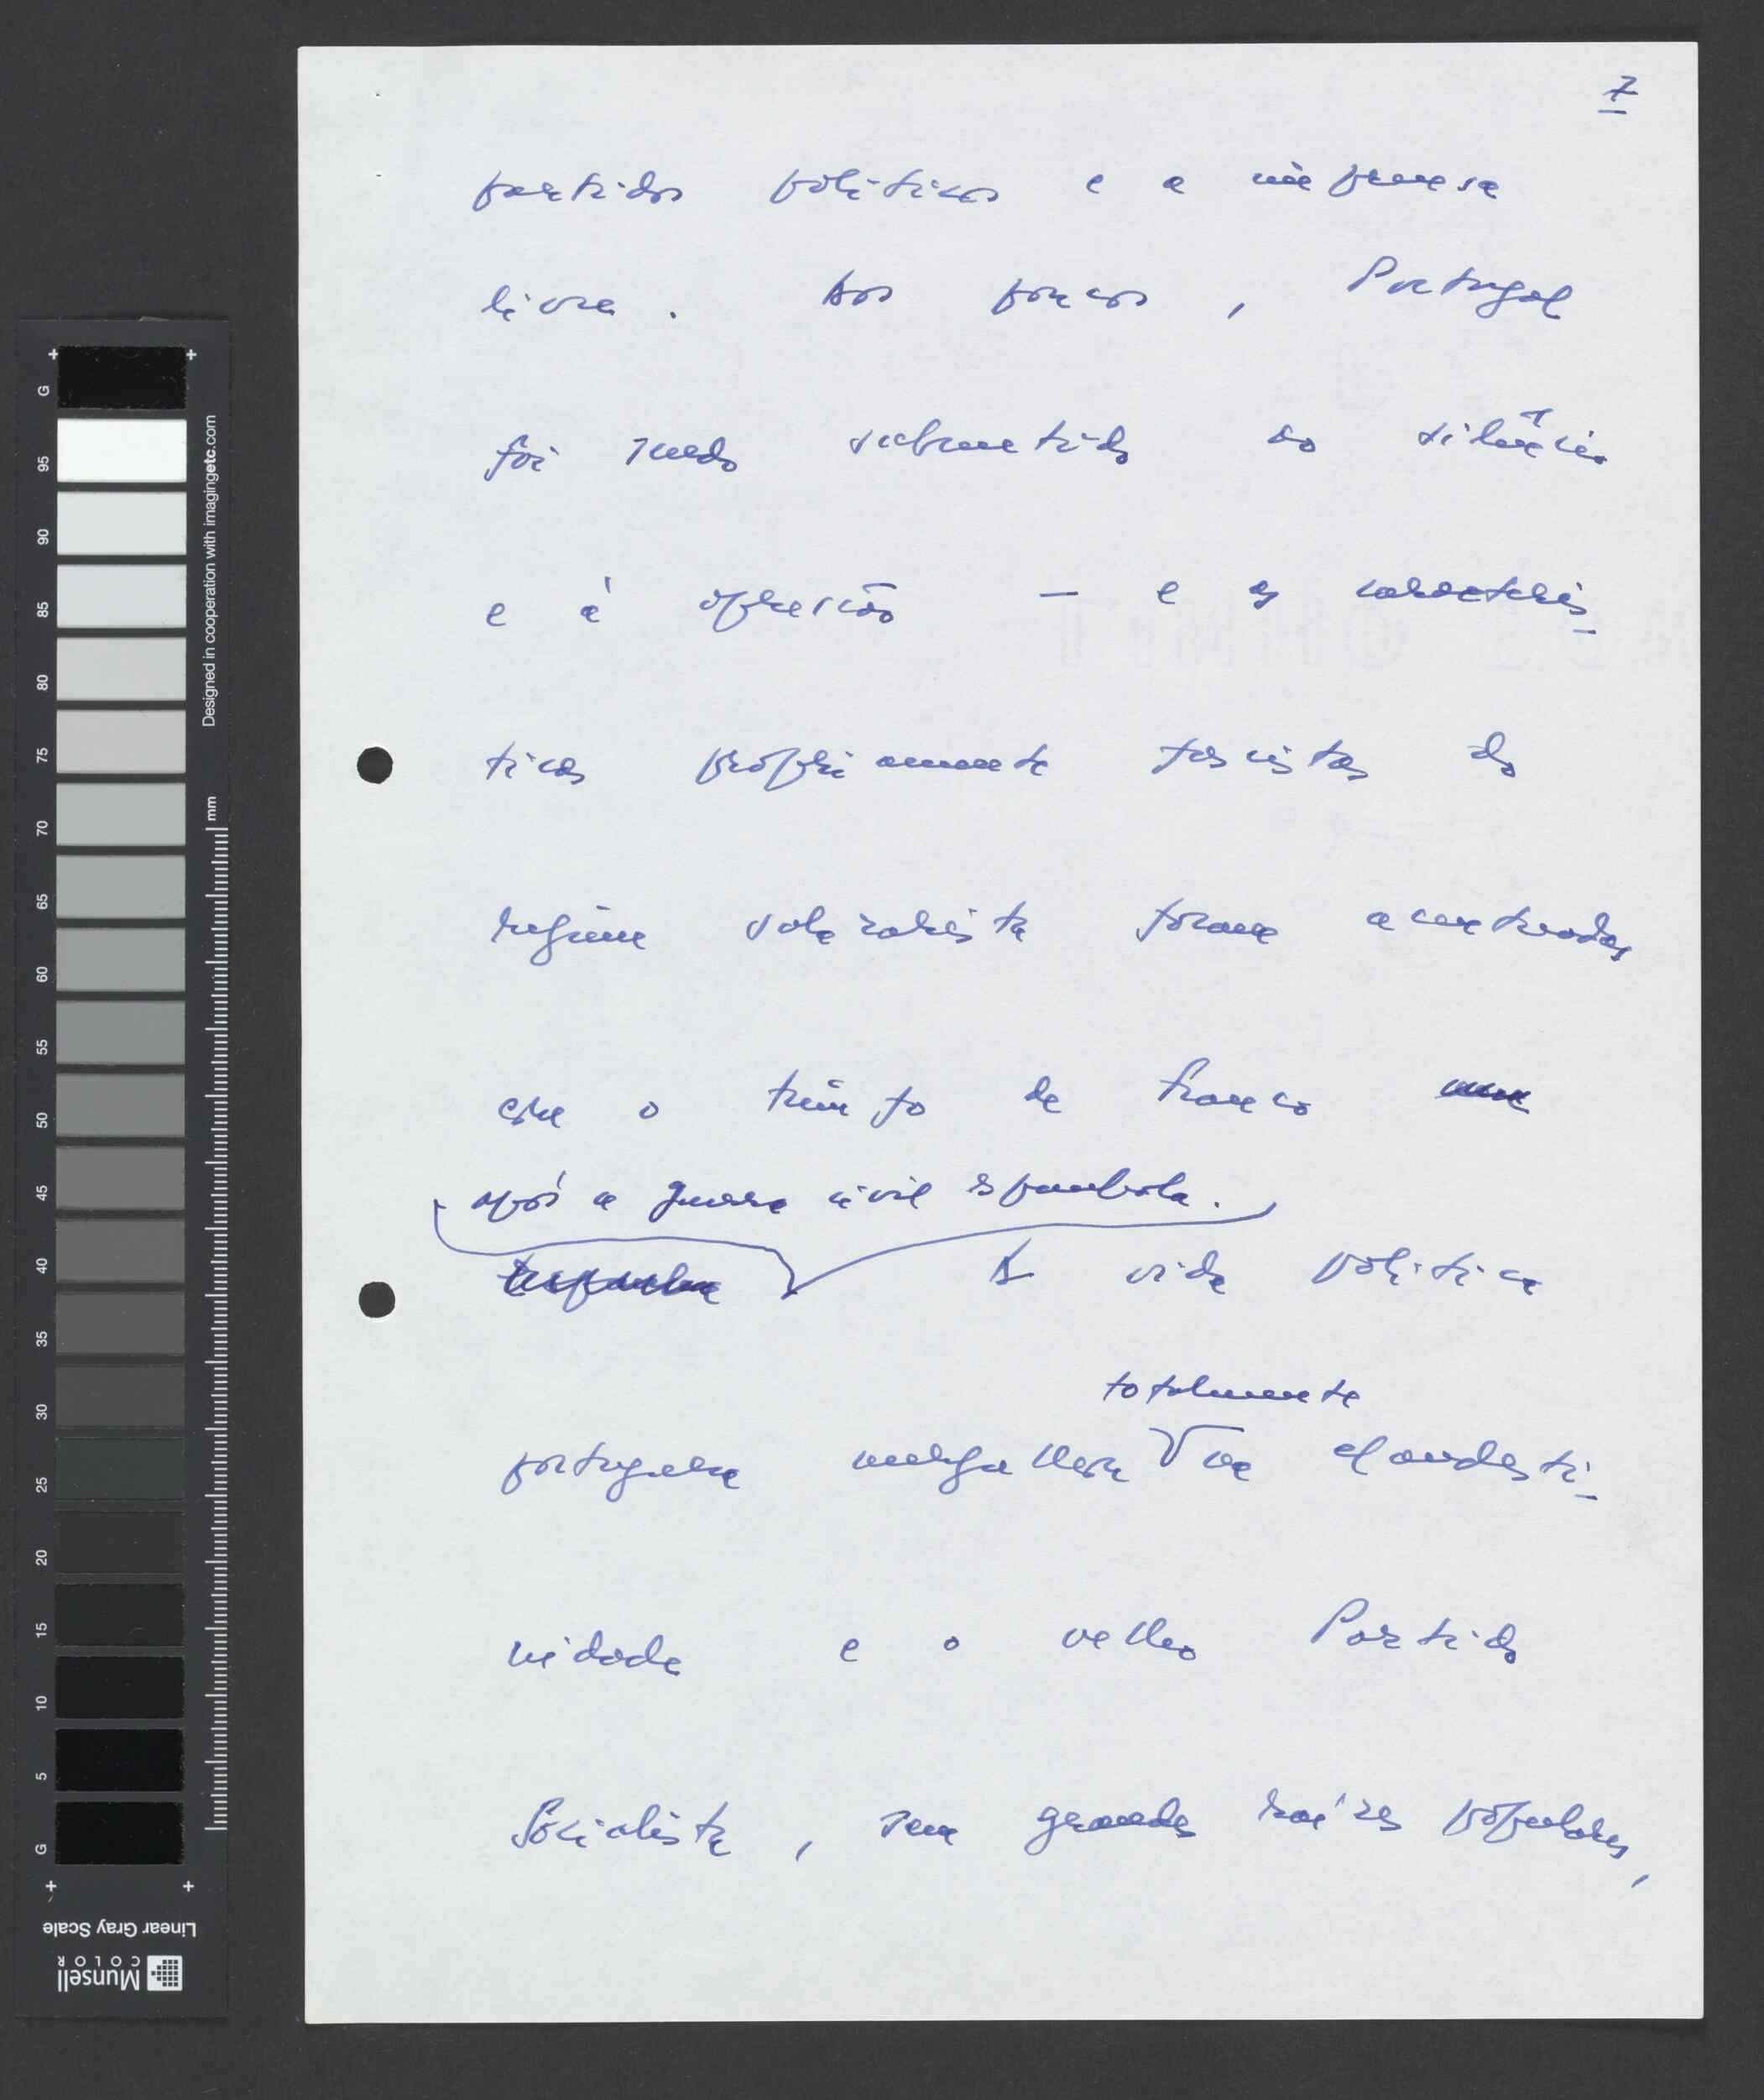 7
partidos políticos e a imprensa
livre. Aos poucos, Portugal
foi sendo submetido ao silêncio
e à opressão — e as caracterís-
ticas propriamente fascistas do
regime salazarista foram acentuadas
com o triunfo de Franco
após a guerra civil espanhola.
A vida política
totalmente
portuguesa mergulhou na clandesti-
nidade e o velho Partido
Socialista, sem grandes raízes populares,
G
95
90
85
80
75
70
65
60
55
50
45
40
35
30
25
20
15
10
5
G
mm
Designed in cooperation with imagingetc.com
Linear Gray Scale
Munsell
COLOR